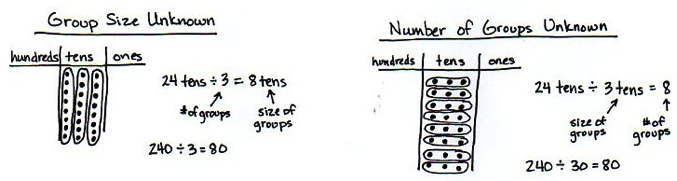 Group Size Unknown
hundreds tens ones
24 tens ÷ 3 = 8 tens
# of groups
size of groups
240 ÷ 3 = 80
Number of Groups Unknown
hundreds tens ones
24 tens ÷ 3 tens = 8
size of groups
# of groups
240 ÷ 30 = 80